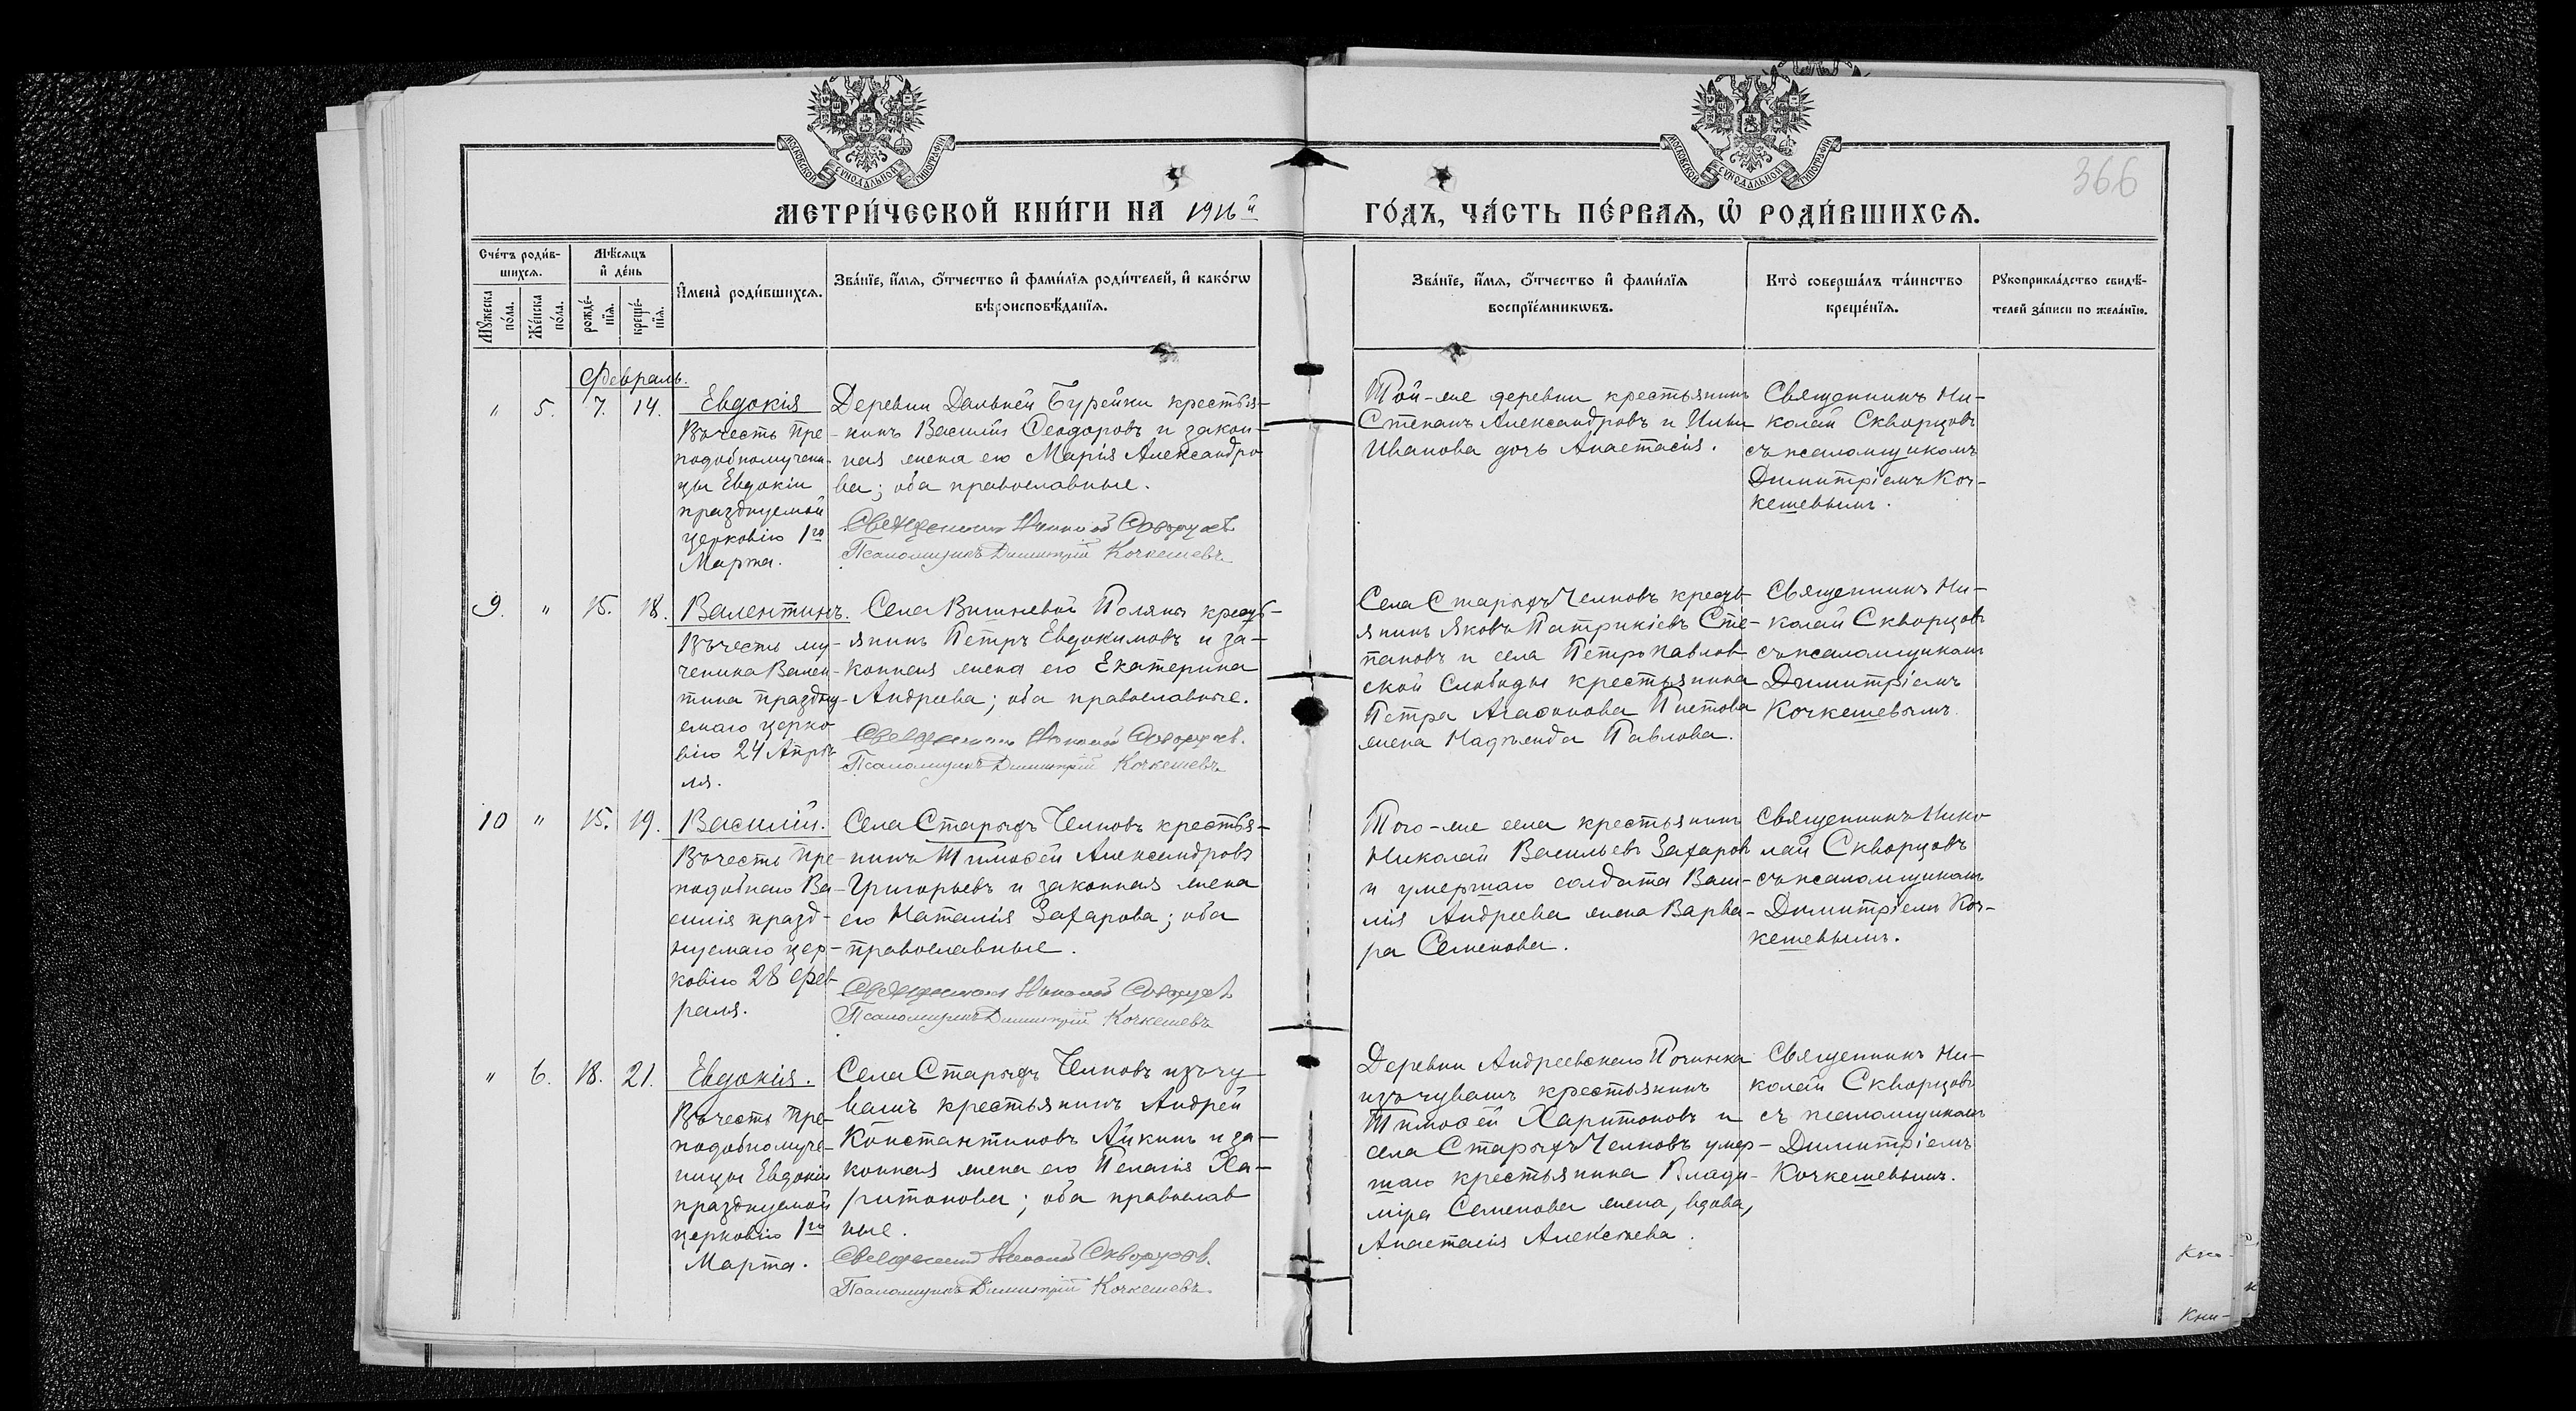 МОСКОВСКОЙ СѴНОДАЛЬНОЙ ТИПОГРАФІИ
МОСКОВСКОЙ СѴНОДАЛЬНОЙ ТИПОГРАФІИ
366
МЕТРИ́ЧЕСКОЙ КНИ́ГИ НА 1916й ГО́ДЪ, ЧА́СТЬ ПЕ́РВАѦ, Ѡ҆ РОДИ́ВШИХСѦ.
Сче́тъ роди́в-
шихсѧ.
Мꙋ́жеска
по́ла.
Же́нска
по́ла.
Мѣ́сѧцъ
и҆ де́нь
рожде́-
нїѧ.
креще́-
нїѧ.
И҆мена̀ роди́вшихсѧ.
Зва́нїе, и҆́мѧ, ѻ҆́тчество и҆ фамі́лїѧ роди́телей, и҆ како́гѡ
вѣроисповѣ́данїѧ.
Зва́нїе, и҆́мѧ, ѻ҆́тчество и҆ фамі́лїѧ
воспрїе́мникѡвъ.
Кто̀ соверша́лъ та́инство
креще́нїѧ.
Рꙋкоприкла́дство свидѣ́-
телей за́писи по жела́нїю.
Февраль.
" 5. 7. 14.
Евдокія
Въ честь Пре-
подобномучени-
цы Евдокіи
празднуемой
церковію 1го
Марта.
Деревни Дальней Бурейки крестья-
нинъ Василій Ѳеодоровъ и закон-
ная жена его Марія Александро-
ва; оба православные.
Священникъ Николай Скворцовъ
Псаломщикъ Димитрій Кочкешевъ
Той-же деревни крестьянинъ
Степанъ Александровъ и
Иванова дочь Анастасія.
Священникъ Ни-
колай Скворцовъ
съ псаломщикомъ
Димитріемъ Коч-
кешевымъ.
9. " 15. 18.
Валентинъ.
Въ честь му-
ченика Вален-
тина праздну-
емаго церко
вію 24 Апрѣ
ля.
Села Вишневой Поляны кресть-
янинъ Петръ Евдокимовъ и за-
конная жена его Екатерина
Андреева; оба православные.
Священникъ Николай Скворцовъ.
Псаломщикъ Димитрій Кочкешевъ
Села Старыхъ Челновъ кресть-
янинъ Яковъ Патрикіевъ Сте-
пановъ и села Петропавлов-
ской Слободы крестьянина
Петра Агаѳонова Пистова
жена Надежда Павлова.
Священникъ Ни-
колай Скворцовъ
съ псаломщикомъ
Димитріемъ
Кочкешевымъ.
10 " 15. 19.
Василій.
Въ честь Пре-
подобнаго Ва-
силія празд-
нуемаго цер-
ковію 28 фев-
раля.
Села Старыхъ Челновъ крестья-
нинъ Тимоѳей Александровъ
Григорьевъ и законная жена
его Наталія Захарова; оба
православные.
Священникъ Николай Скворцовъ
Псаломщикъ Димитрій Кочкешевъ
Того-же села крестьянинъ
Николай Васильевъ Захаровъ
и умершаго солдата Васи-
лія Андреева жена Варва-
ра Семенова.
Священникъ Нико-
лай Скворцовъ
съ псаломщикомъ
Димитріемъ Коч-
кешевымъ.
" 6. 18. 21.
Евдокія.
Въ честь Пре-
подобномуче-
ницы Евдокіи
празднуемой
церковію 1го
Марта.
Села Старыхъ Челновъ изъ чу-
вашъ крестьянинъ Андрей
Константиновъ Айкинъ и за-
конная жена его Пелагія Ха-
ритонова; оба православ
ные.
Священникъ Николай Скворцовъ.
Псаломщикъ Димитрій Кочкешевъ.
Деревни Андреевскаго Починка
изъ чувашъ крестьянинъ
Тимоѳей Харитоновъ и
села Старыхъ Челновъ умер-
шаго крестьянина Влади-
міра Семенова жена, вдова,
Анастасія Алексѣева.
Священникъ Ни-
колай Скворцовъ
съ псаломщикомъ
Димитріемъ
Кочкешевымъ.
Кни-